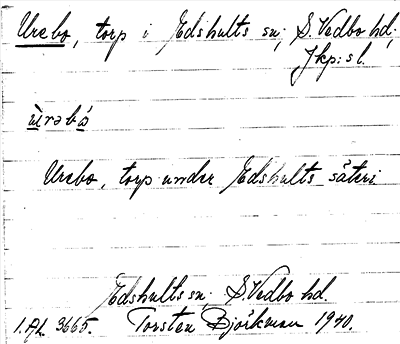 Urebo, torp i Edshults sn; S. Vedbo hd;
Jkp:s l.
ùrəbó
Urebo, torp under Edshults säteri
Edshults sn; S. Vedbo hd.
Torsten Björkman 1940.